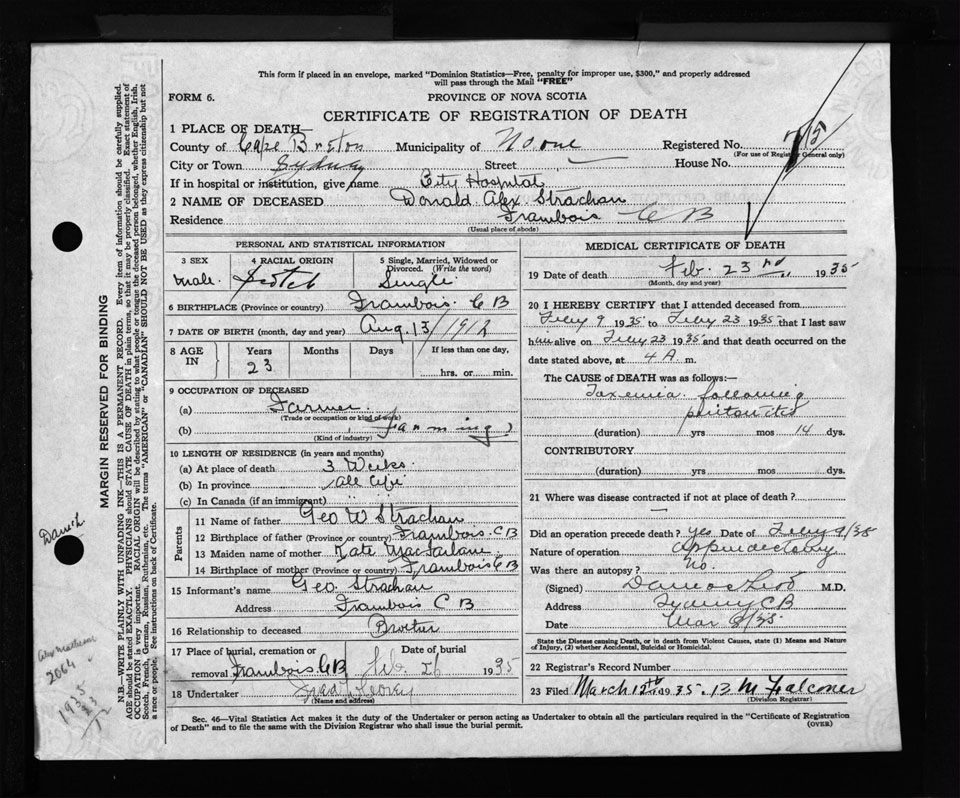 This form if placed in an envelope, marked "Dominion Statistics—Free, penalty for improper use, $300," and properly addressed
will pass through the Mail "FREE"
FORM 6.
PROVINCE OF NOVA SCOTIA
CERTIFICATE OF REGISTRATION OF DEATH
1 PLACE OF DEATH—
County of Cape Breton Municipality of None Registered No. 75
(For use of Registrar General only)
City or Town Sydney Street — House No.
If in hospital or institution, give name City Hospital
2 NAME OF DECEASED Donald Alex. Strachan
Residence Frambois C B
(Usual place of abode)
PERSONAL AND STATISTICAL INFORMATION
3 SEX 4 RACIAL ORIGIN 5 Single, Married, Widowed or
Divorced. (Write the word)
male Scotch Single
6 BIRTHPLACE (Province or country) Frambois. C B
7 DATE OF BIRTH (month, day and year) Aug. 13/1912
8 AGE IN Years Months Days If less than one day,
23 hrs. or min.
9 OCCUPATION OF DECEASED
(a) Farmer.
(Trade or occupation or kind of work)
(b) (farming)
(Kind of industry)
10 LENGTH OF RESIDENCE (in years and months)
(a) At place of death 3 Weeks.
(b) In province All life
(c) In Canada (if an immigrant)
Parents
11 Name of father Geo W Strachan
12 Birthplace of father (Province or country) Frambois. C B
13 Maiden name of mother Kate MacFarlane
14 Birthplace of mother (Province or country) Frambois C B
15 Informant's name Geo. Strachan
Address Frambois C B
16 Relationship to deceased Brother
17 Place of burial, cremation or Date of burial
removal Frambois C B Feb. 26 1935
18 Undertaker
(Name and address)
MEDICAL CERTIFICATE OF DEATH
19 Date of death Feb. 23rd 1935
(Month, day and year)
20 I HEREBY CERTIFY that I attended deceased from
Feby 9 1935 to Feby 23 1935 that I last saw
him alive on Feby 23 1935 and that death occurred on the
date stated above, at 4 A. m.
The CAUSE of DEATH was as follows:—
Toxemia following
peritonitis
(duration) yrs mos 14 dys.
CONTRIBUTORY
(duration) yrs mos dys.
21 Where was disease contracted if not at place of death?
—
Did an operation precede death? yes Date of Feby 9/35
Nature of operation Appendectomy
Was there an autopsy? No.
(Signed) M.D.
Address Sydney C B
Date Mar 9/35
State the Disease causing Death, or in death from Violent Causes, state (1) Means and Nature
of Injury, (2) whether Accidental, Suicidal or Homicidal.
22 Registrar's Record Number
23 Filed March 12th 1935. B. M Falconer
(Division Registrar)
Sec. 46—Vital Statistics Act makes it the duty of the Undertaker or person acting as Undertaker to obtain all the particulars required in the "Certificate of Registration
of Death" and to file the same with the Division Registrar who shall issue the burial permit.
(OVER)
MARGIN RESERVED FOR BINDING
N.B.—WRITE PLAINLY WITH UNFADING INK—THIS IS A PERMANENT RECORD. Every item of information should be carefully supplied.
AGE should be stated EXACTLY. PHYSICIANS should STATE CAUSE OF DEATH in plain terms, so that it may be properly classified. Exact statement of
OCCUPATION is very important. RACIAL ORIGIN will be described by stating to what people or tongue the deceased person belonged, whether English, Irish,
Scotch, French, German, Russian, Ruthenian, etc. The terms "AMERICAN" or "CANADIAN" SHOULD NOT BE USED as they express citizenship but not
a race or people. See instructions on back of Certificate.
2064
1935
23